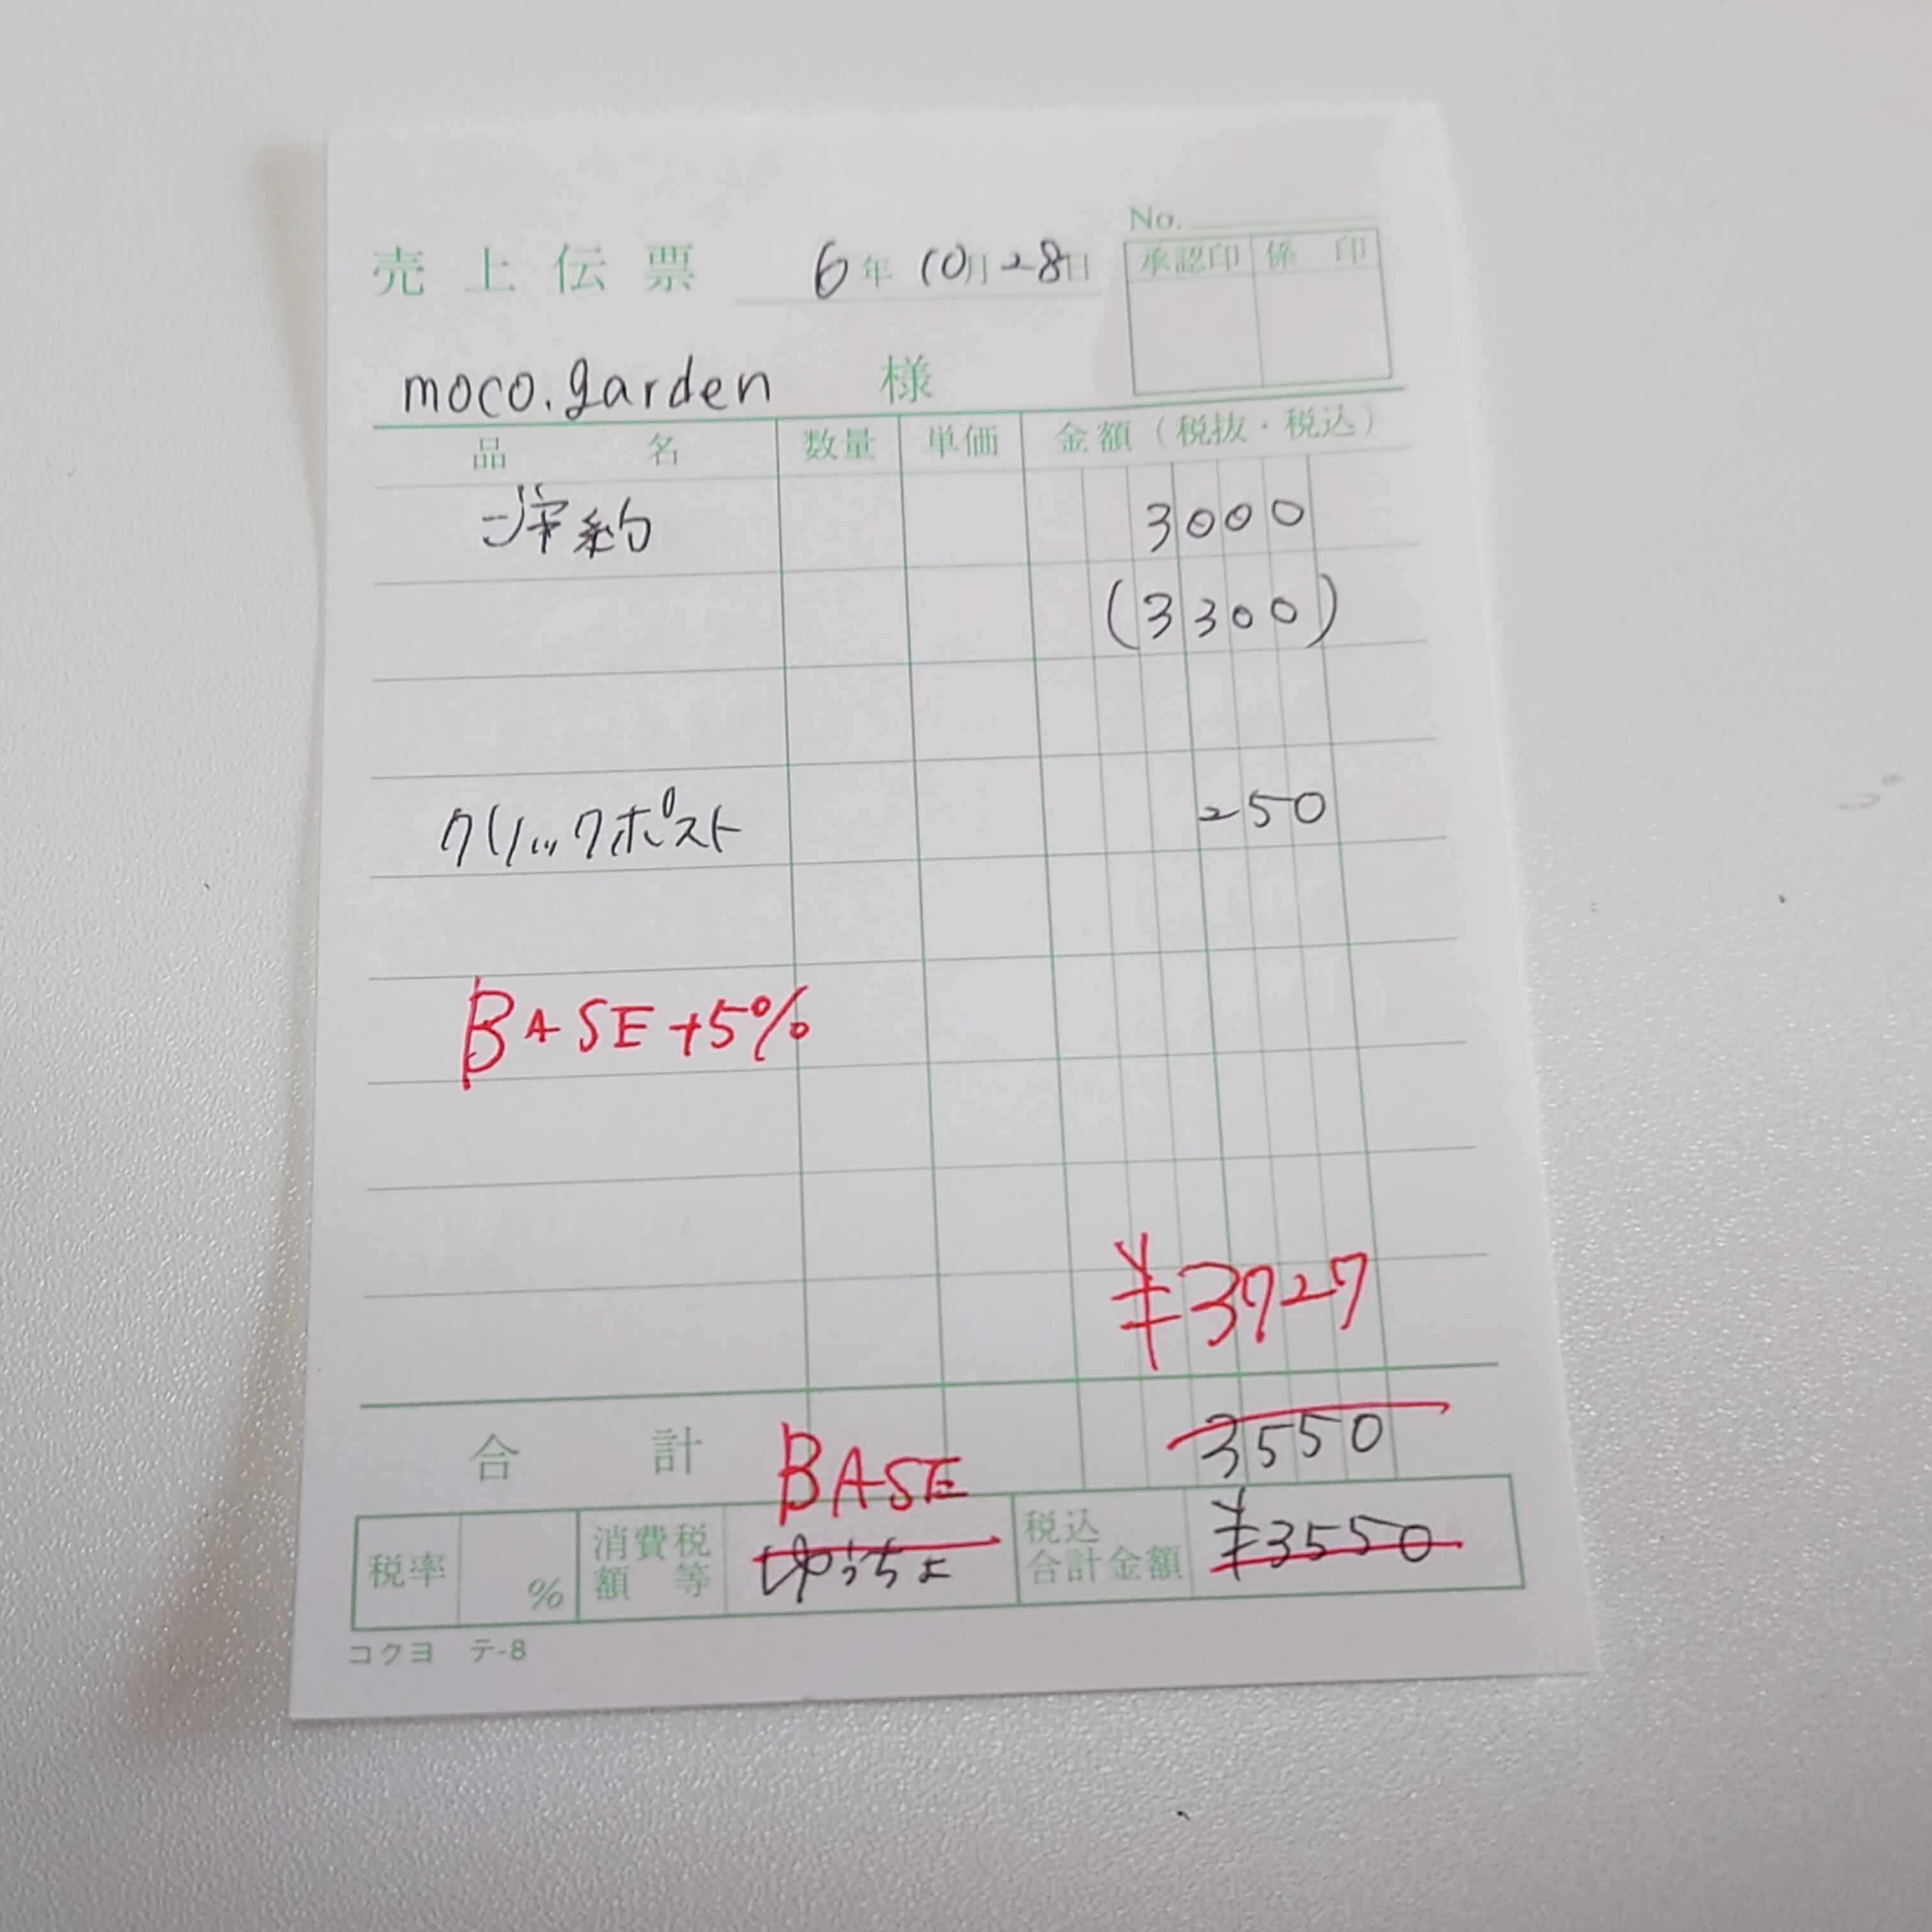 No.
売上伝票 6年10月28日
承認印 係印
moco.garden 様
品名 数量 単価 金額(税抜・税込)
3000
(3300)
クリックポスト 250
BASE+5%
¥3727
合計 BASE 3550
税率 % 消費税額等 ゆうちょ 税込合計金額 ¥3550
コクヨ テ-8